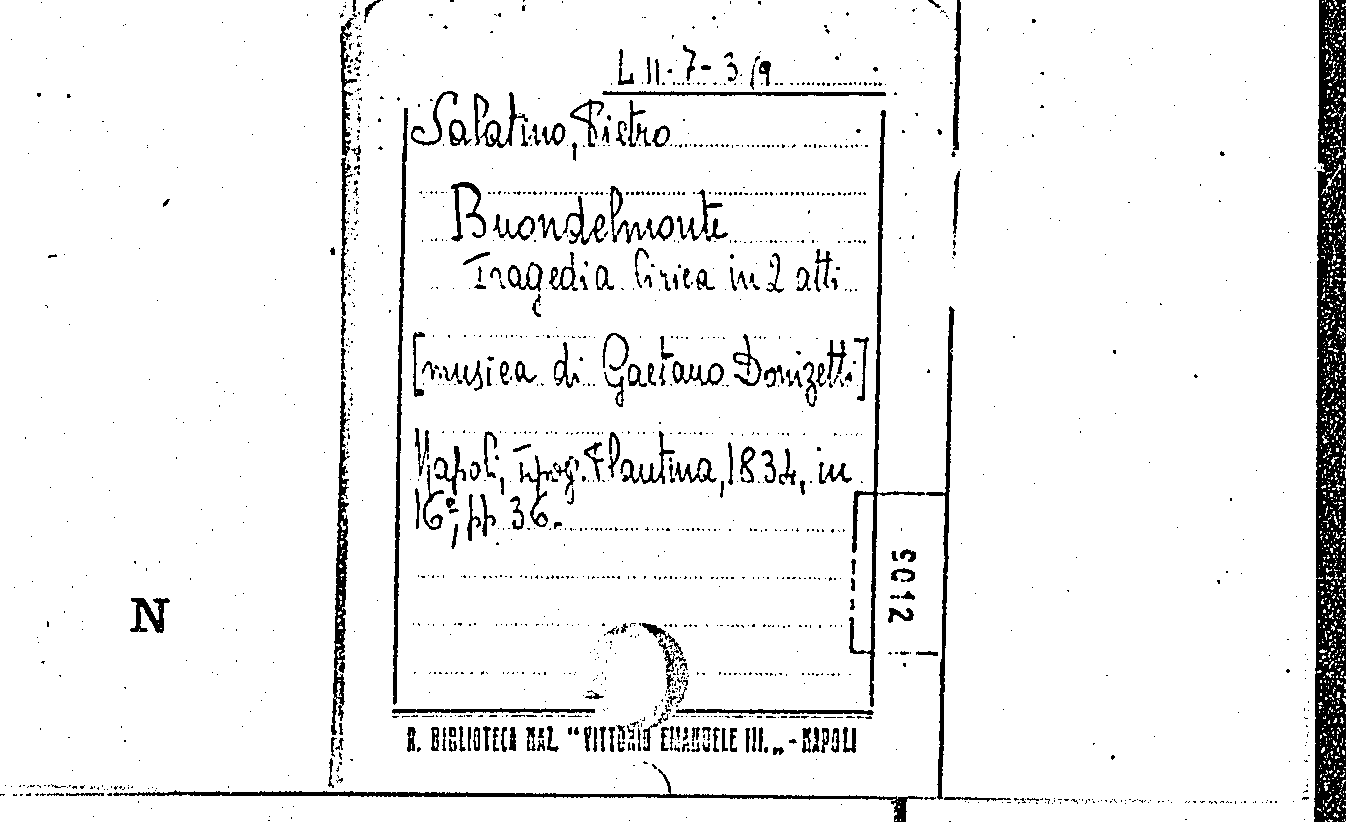 L II-7-3 (9
Salatino, Pietro
Buondelmonte
Tragedia lirica in 2 atti
[musica di Gaetano Donizetti]
Napoli, tipog. Flautina, 1834, in
16º, pp 36.
9012
N
R. BIBLIOTECA NAZ. "VITTORIO EMANUELE III.„ - NAPOLI